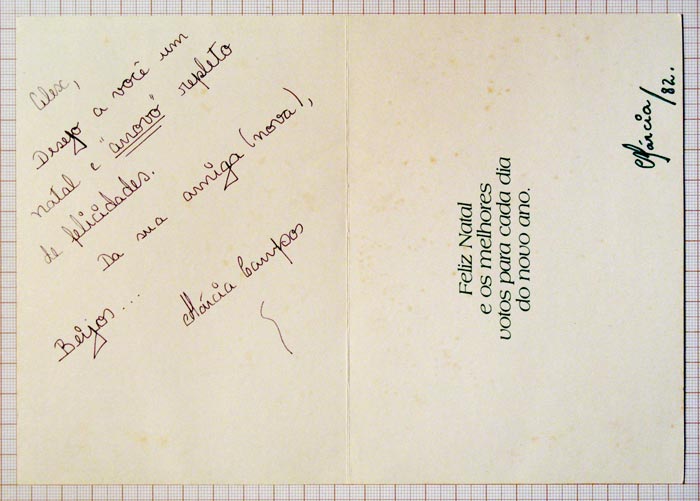 Alex,
Desejo a você um
natal e "anovo" repleto
de felicidades.
Da sua amiga (nova),
Márcia Campos
Beijos...
Feliz Natal
e os melhores
votos para cada dia
do novo ano.
Márcia/82.